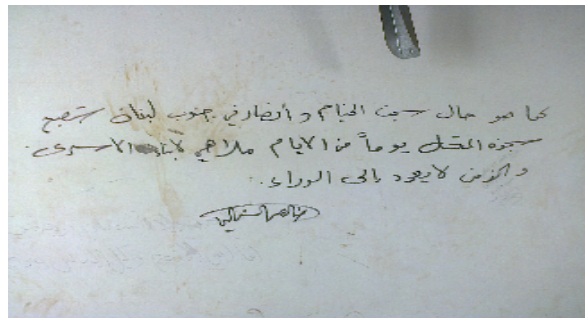 كما هو حال سجن الخيام و أنصار في جنوب لبنان ستصبح
سجون المحتل يوماً من الايام ملاهي لأبناء الأسرى.
والزمن لا يعود إلى الوراء.